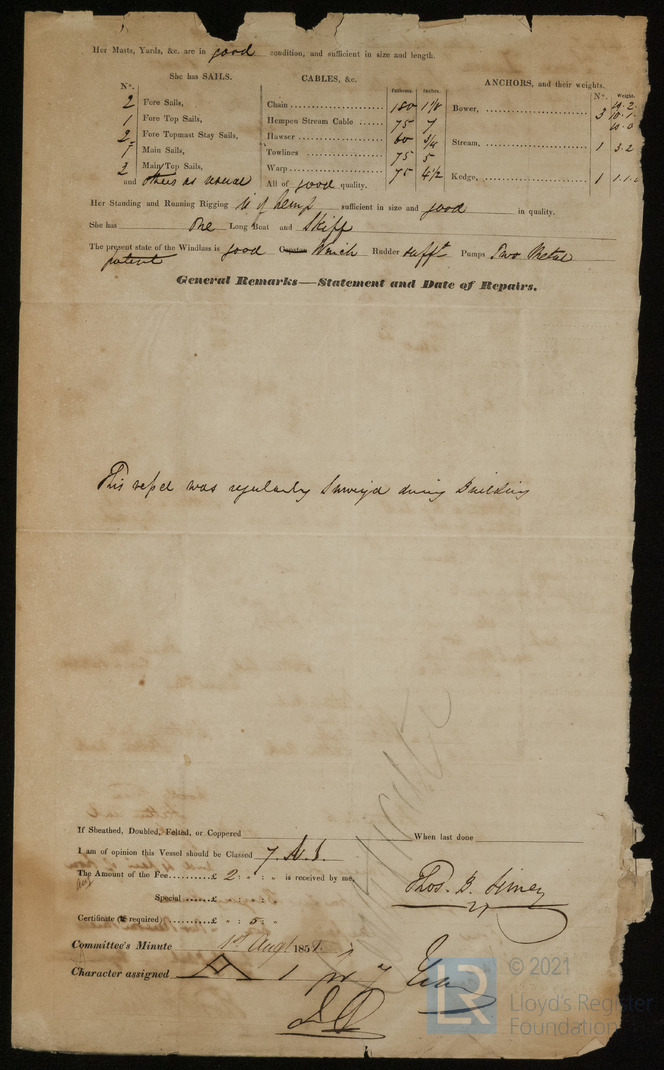 Her Masts, Yards, &c. are in good condition, and sufficient in size and length.
She has SAILS. CABLES, &c. ANCHORS, and their weights.
N°. Fathoms. Inches. N°. Weight.
2 Fore Sails, Chain 180 1 1/8 Bower, 3 10.2
1 Fore Top Sails, Hempen Stream Cable 75 7 10.1
2 Fore Topmast Stay Sails, Hawser 60 10.0
1 Main Sails, Towlines 75 5 Stream, 1 3.2
2 Main Top Sails, Warp 75 4 1/2
and others as usual All of good quality. Kedge, 1 1.1.0
Her Standing and Running Rigging is of hemp sufficient in size and good in quality.
She has one Long Boat and Skiff
The present state of the Windlass is good Capstan Winch Rudder sufft Pumps Two Metal
patent
General Remarks—Statement and Date of Repairs.
This vessel was regularly Surveyed during Building
If Sheathed, Doubled, Felted, or Coppered When last done
I am of opinion this Vessel should be Classed 7 A.1.
The Amount of the Fee £ 2 : " : " is received by me,
Special £ " : " : "
Thos. B. Simey
Certificate (if required) £ " : 5 : "
Committee's Minute 1st Augt 185
Character assigned A 1 for 7 Years
© 2021
LR
Lloyd's Register
Foundation